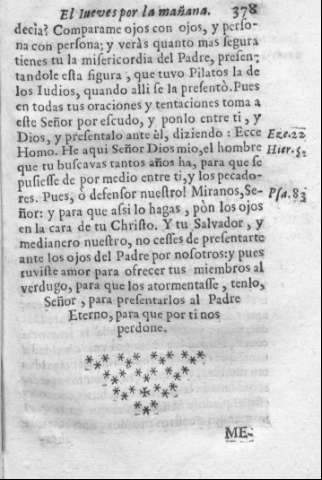 El Iueves por la mañana. 378
decia? Comparame ojos con ojos, y perso-
na con persona; y veràs quanto mas segura
tienes tu la misericordia del Padre, presen-
tandole esta figura, que tuvo Pilatos la de
los Iudios, quando alli se la presentò. Pues
en todas tus oraciones y tentaciones toma a
este Señor por escudo, y ponlo entre ti, y
Dios, y presentalo ante èl, diziendo: Ecce Eze. 22
Homo. He aqui Señor Dios mio, el hombre Hier. 52
que tu buscavas tantos años ha, para que se
pusiesse de por medio entre ti, y los pecado-
res. Pues, ò defensor nuestro! Miranos, Se- Psa. 83
ñor: y para que assi lo hagas, pòn los ojos
en la cara de tu Christo. Y tu Salvador, y
medianero nuestro, no cesses de presentarte
ante los ojos del Padre por nosotros: y pues
tuviste amor para ofrecer tus miembros al
verdugo, para que los atormentasse, tenlo,
Señor, para presentarlos al Padre
Eterno, para que por ti nos
perdone.
ME-